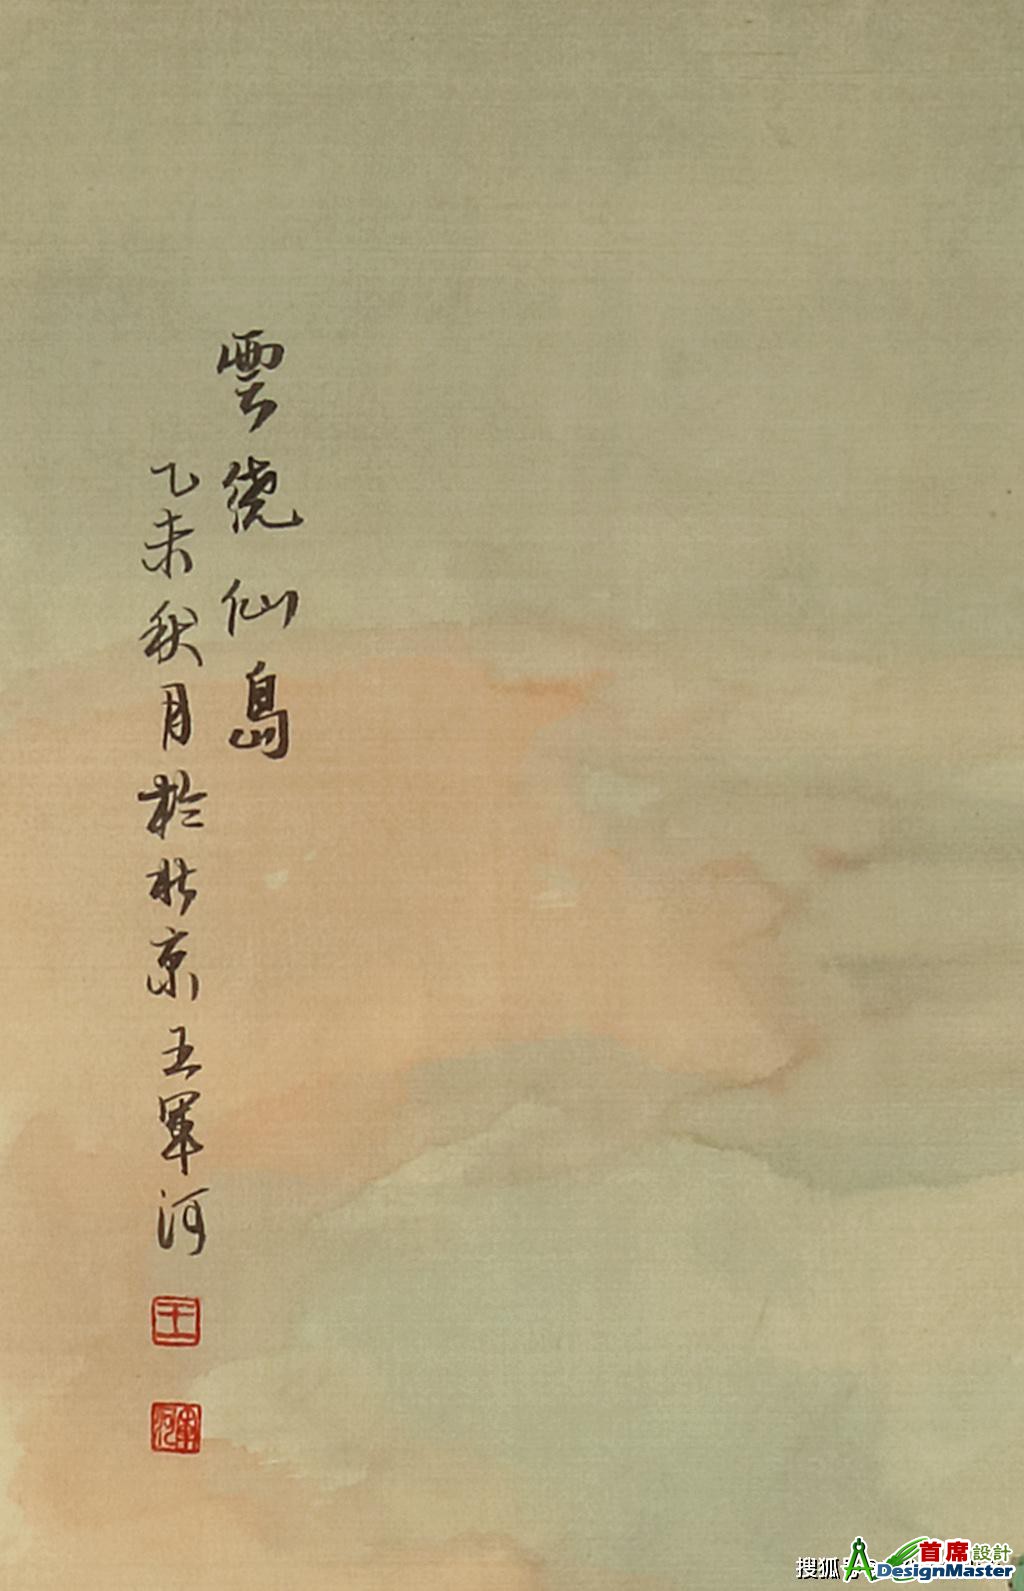 雲繞仙島
乙未秋月於北京王軍河
王
軍河
搜狐号
首席設計
ADesignMaster